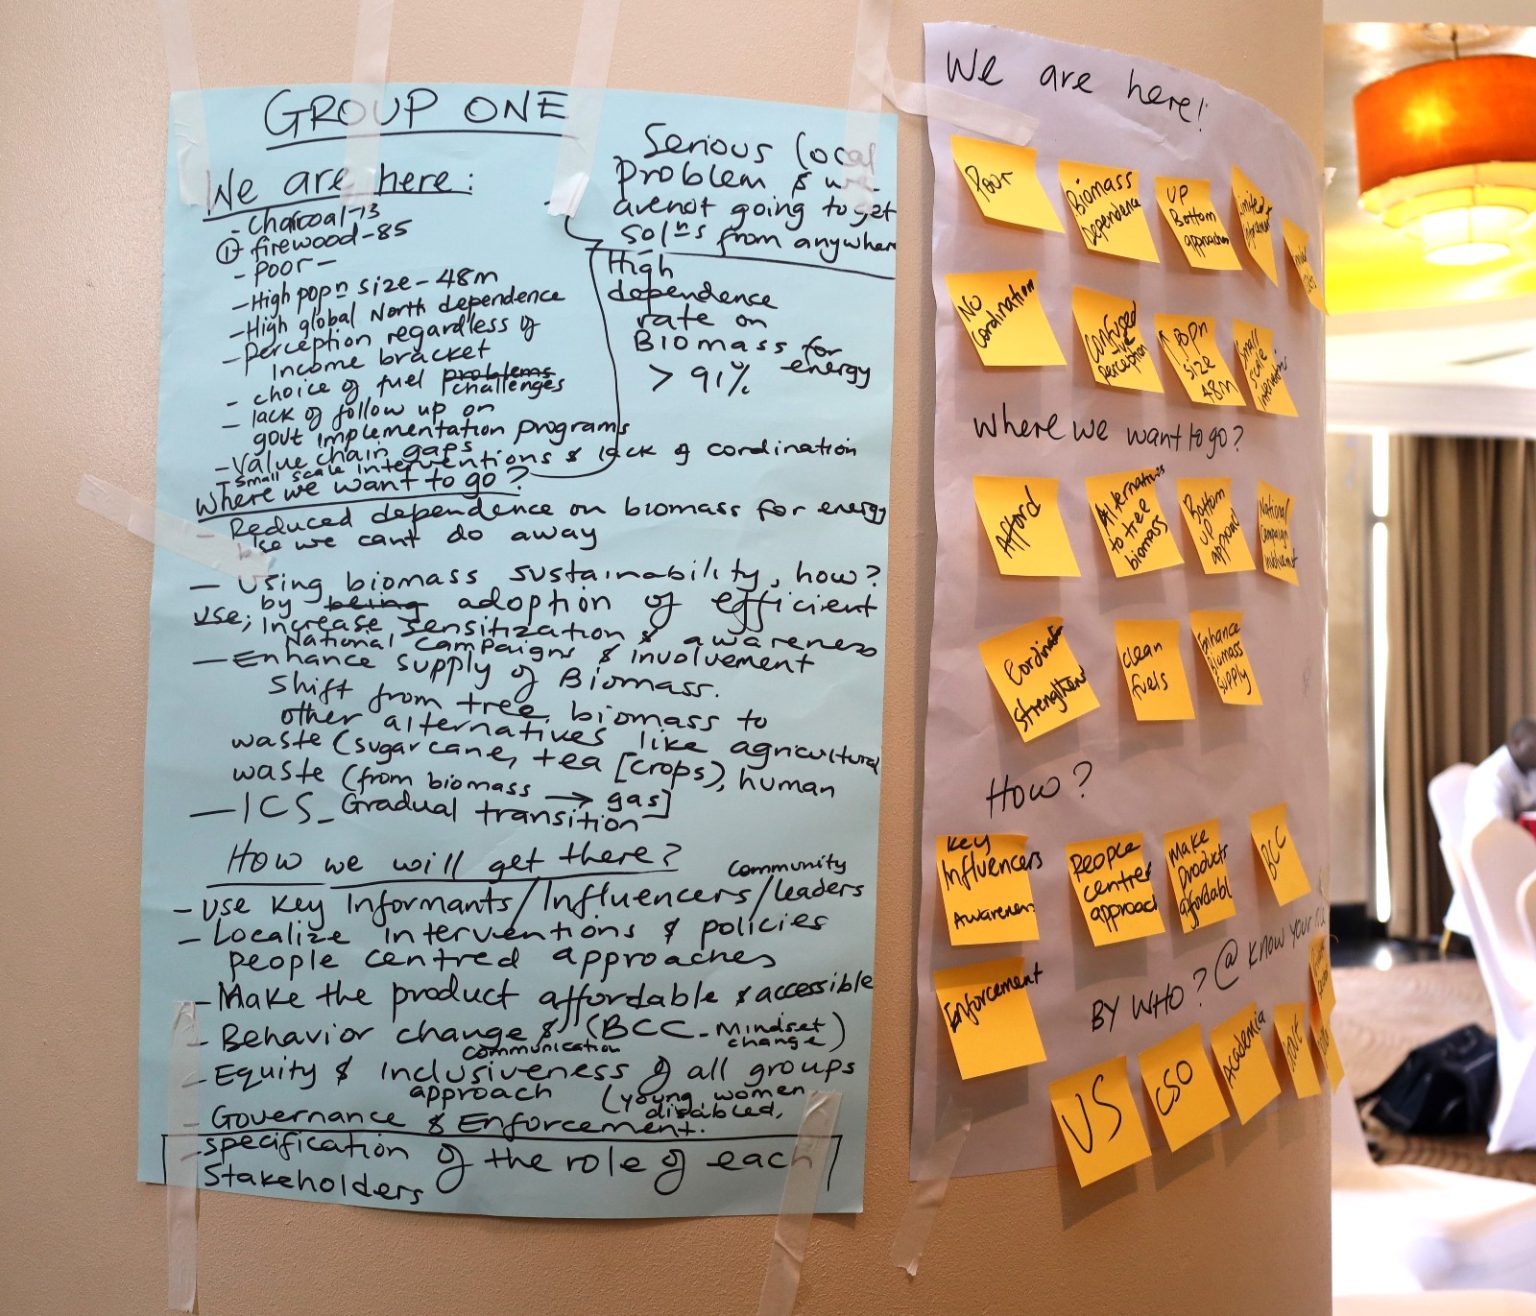 GROUP ONE
We are here:
- Charcoal-13
① firewood-85
- poor -
- High popn size - 48m
- High global North dependence
- Perception regardless of
Income bracket
- choice of fuel problems challenges
- lack of follow up on
govt implementation programs
- Value chain gaps
- Small scale interventions & lack of cordination
Serious local
Problem & we
arenot going to get
solns from anywhere
High
dependence
rate on
Biomass for
energy
> 91%
Where we want to go?
- Reduced dependence on biomass for energy
we cant do away
- Using biomass sustainability, how?
by being adoption of efficient
use; increase sensitization & awareness
National Campaigns & involvement
- Enhance supply of Biomass.
Shift from tree biomass to
other alternatives like agricultural
waste (sugarcane, tea [crops), human
waste (from biomass → gas]
- ICS - Gradual transition
How we will get there?
- Use key Informants/Influencers/Community leaders
- Localize interventions & policies
people centred approaches
- Make the product affordable & accessible
- Behavior change & (BCC - Mindset change)
communication
- Equity & inclusiveness of all groups
approach (young, women
disabled,
- Governance & Enforcement.
- specification of the role of each
Stakeholders
We are here!
Poor
Biomass
Dependence
UP
Bottom
approaches
No
Cordination
Confused
perception
↑ POPn
size
48m
Small
scale
interventions
Where we want to go?
Afford
Alternatives
to tree
biomass
Bottom
UP
approach
National
Campaign
Involvement
Cordination
strengthened
Clean
fuels
Enhance
Biomass
Supply
How?
Key
Influencers
Awareness
People
centred
approach
Make
products
affordabl
BCC
Enforcement
BY WHO? @ Know your
US
CSO
Academia